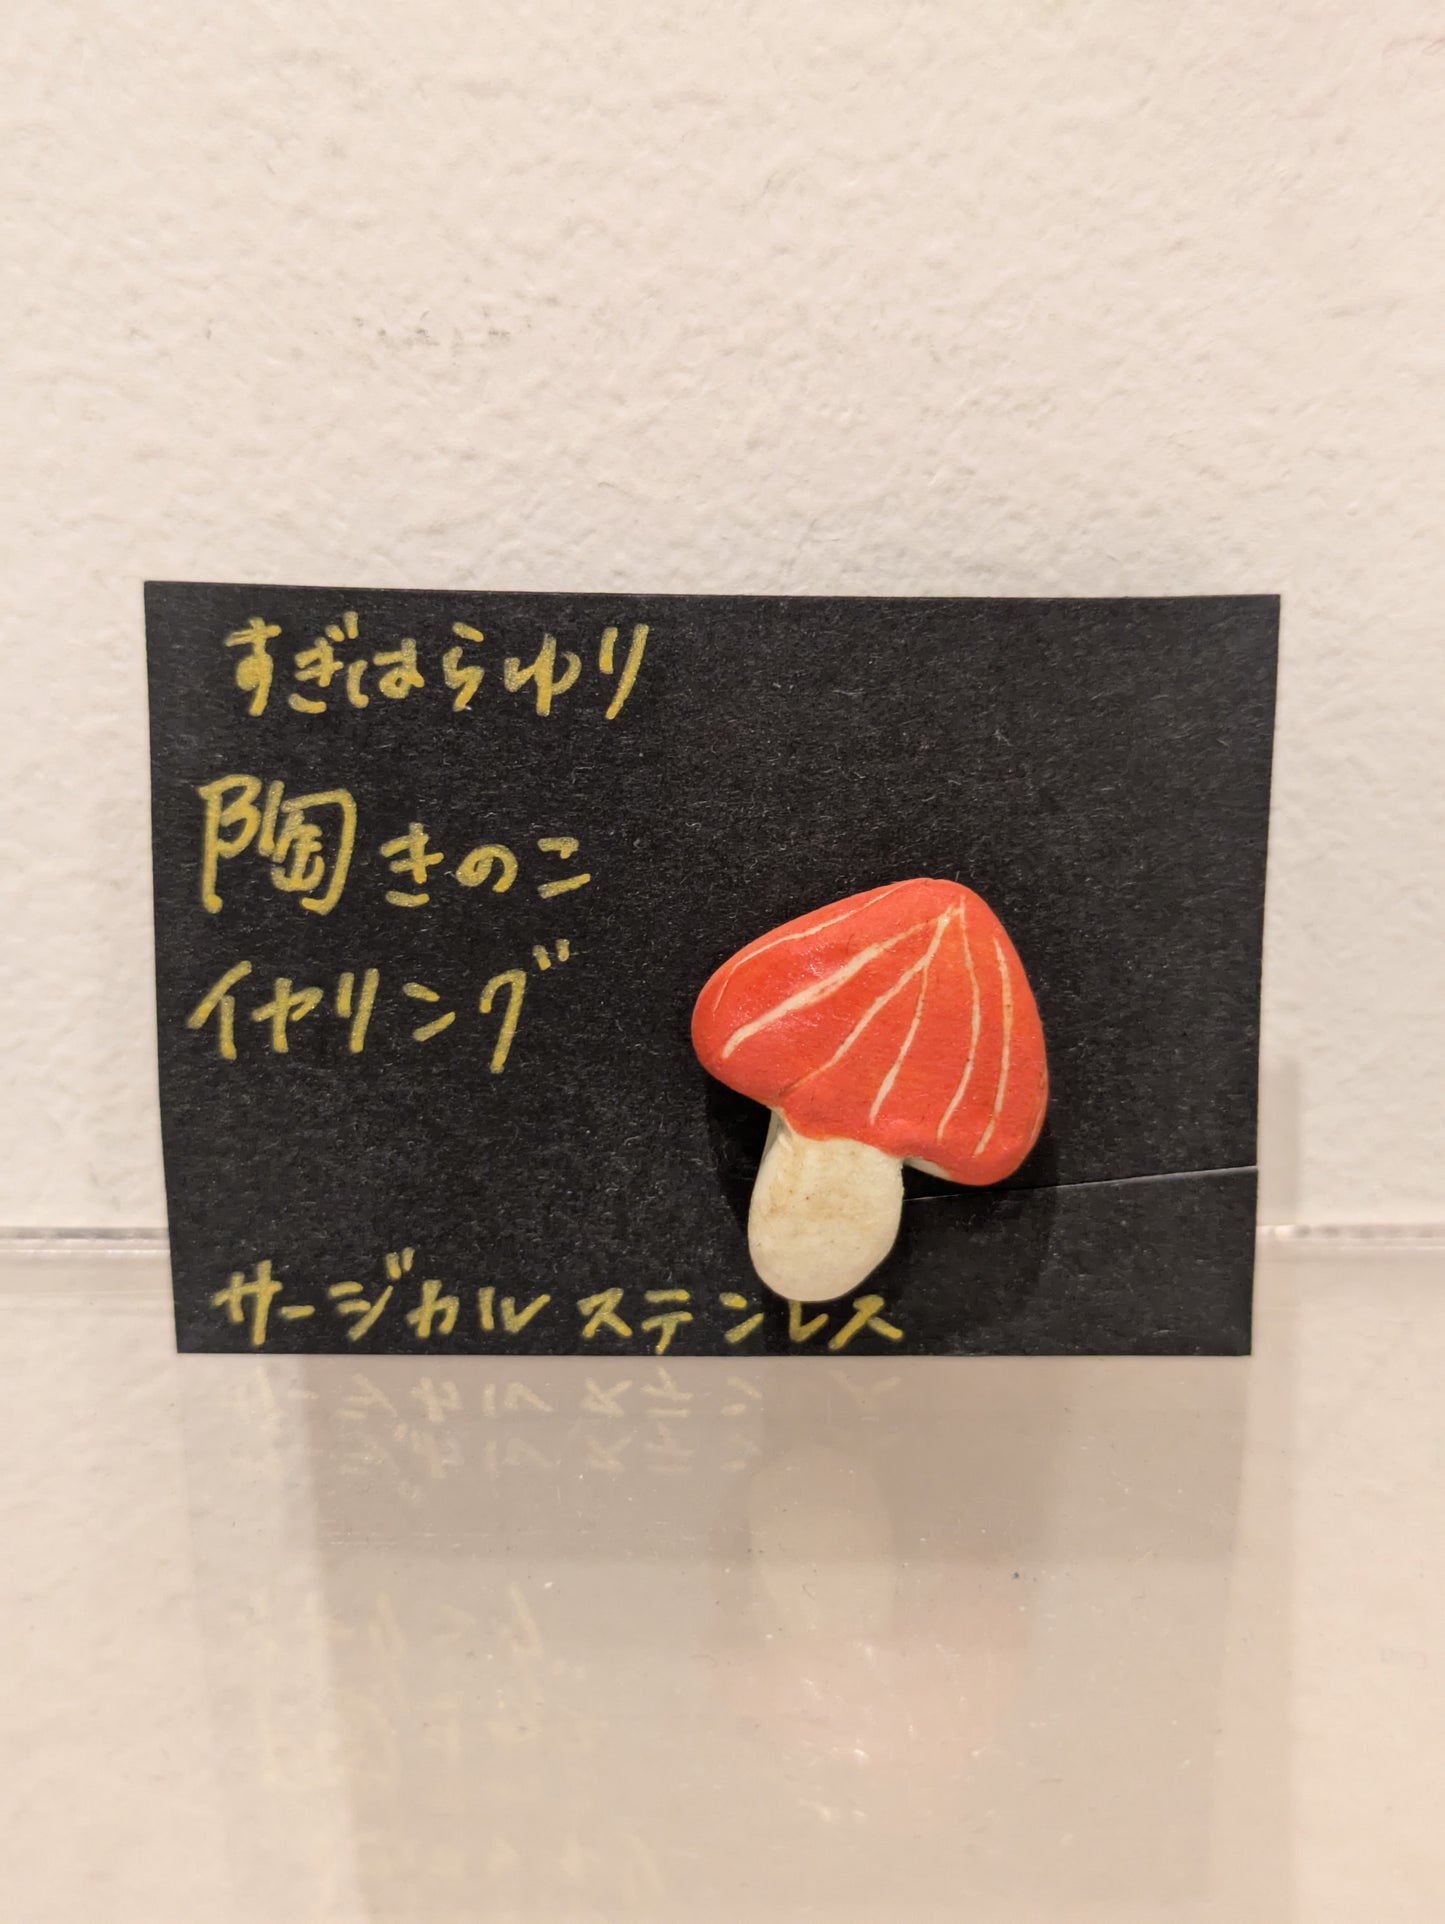 すぎはらゆり
陶きのこ
イヤリング
サージカルステンレス